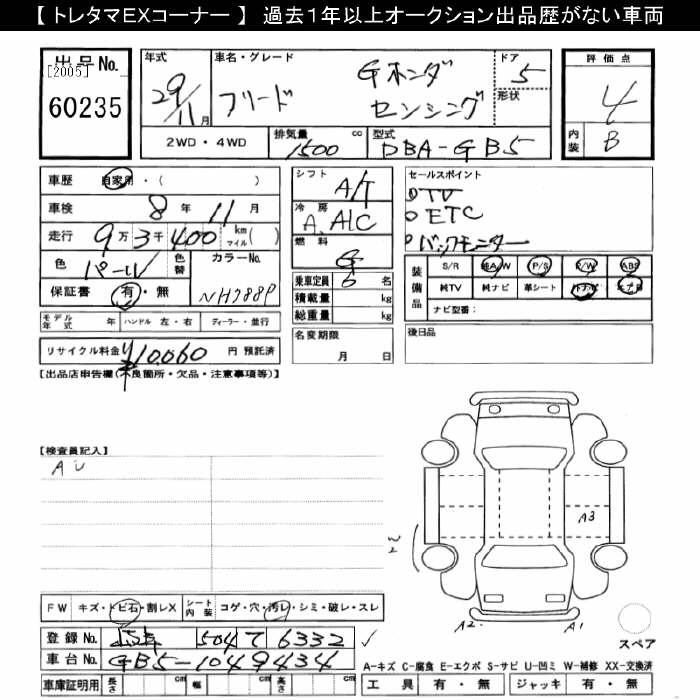 【 トレタマEXコーナー 】 過去1年以上オークション出品歴がない車両
出品No.
[2005]
60235
年式
29/11月
車名・グレード
フリード
Gホンダ
センシング
ドア
5
形状
評価点
4
内装
B
2WD・4WD
排気量
1500 cc
型式
DBA-GB5
車歴 自家用・( )
車検 8年 11月
走行 9万3千400 km マイル( )
色 パール 色替
カラーNo.
NH788P
保証書 有・無
シフト A/T
冷房 A.A/C
燃料 G
乗車定員 6名
積載量 kg
総重量 kg
名変期限
月 日
セールスポイント
TV
ETC
バックモニター
装備品
S/R 純A/W P/S P/W ABS
純TV 純ナビ 革シート
ナビ型番:
後日品
モデル年式 年 ハンドル 左・右 ディーラー・並行
リサイクル料金 ¥10,060 円 預託済
【出品店申告欄(不良箇所・欠品・注意事項等)】
【検査員記入】
AU
A3
A2
A1
FW キズ・トビ石・割レX
シート内装 コゲ・穴・汚レ・シミ・破レ・スレ
スペア
登録No. 504 て 6332
車台No. GB5-1049434
A-キズ C-腐食 E-エクボ S-サビ U-凹ミ W-補修 XX-交換済
車庫証明用 長さ cm 幅 cm 高さ cm
工具 有・無 ジャッキ 有・無